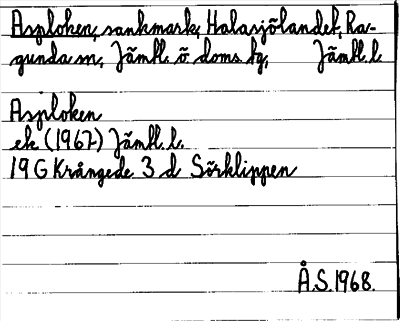 Asploken, sankmark, Halasjölandet, Ra-
gunda sn, Jämtl. ö doms tg, Jämtl. l
Asploken
ek (1967) Jämtl. l.
19 G Krångede 3 d Sörklippen
Å.S. 1968.